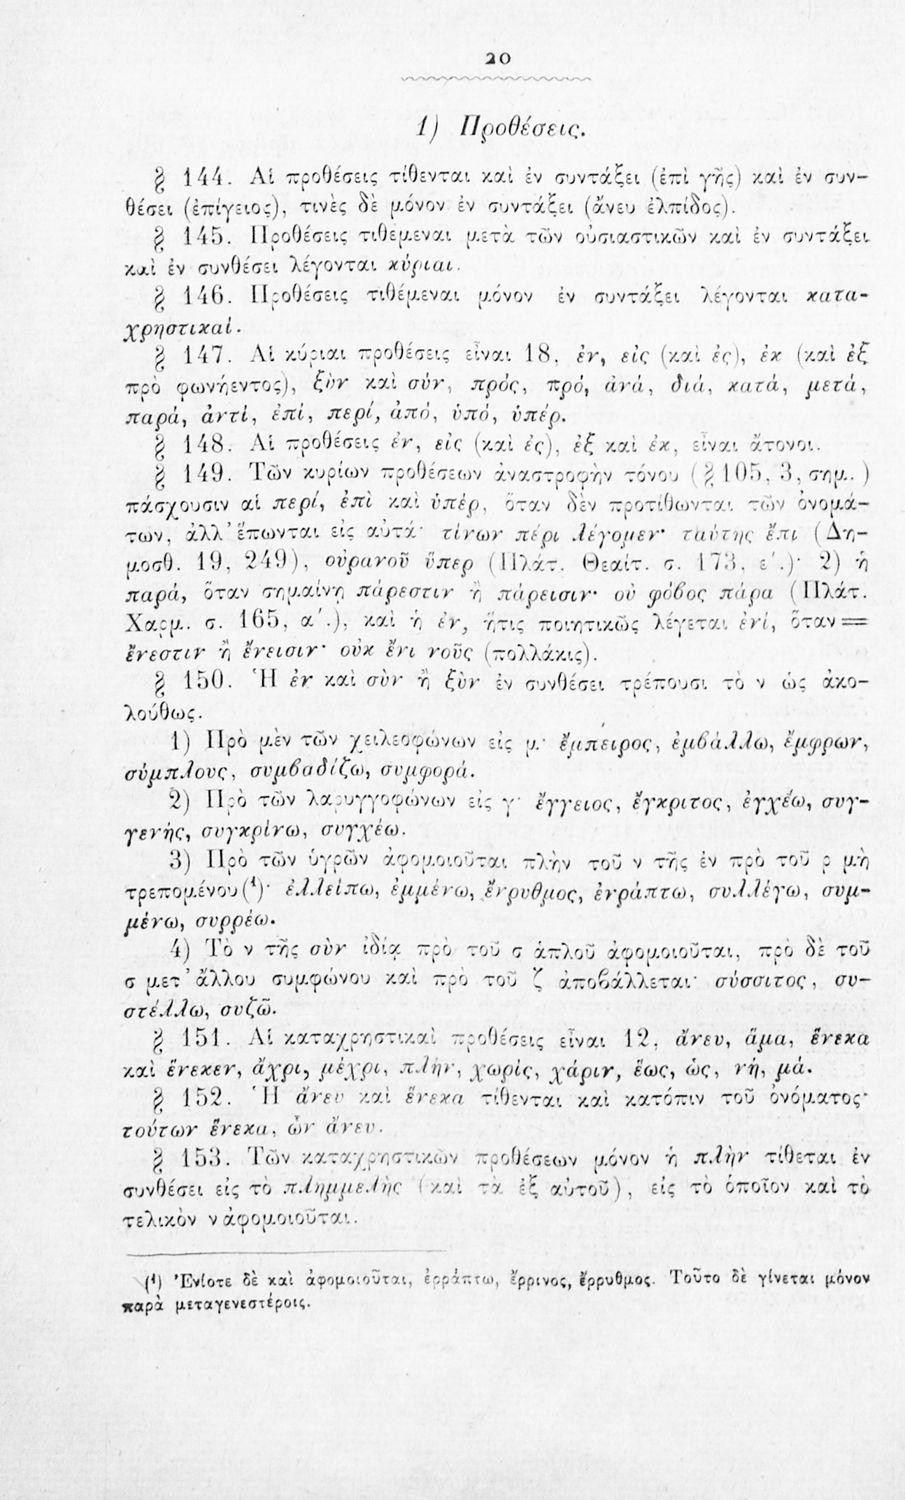 20
1) Προθέσεις.
§ 144. Αἱ προθέσεις τίθενται καὶ ἐν συντάξει (ἐπὶ γῆς) καὶ ἐν συν-
θέσει (ἐπίγειος), τινὲς δὲ μόνον ἐν συντάξει (ἄνευ ἐλπίδος).
§ 145. Προθέσεις τιθέμεναι μετὰ τῶν οὐσιαστικῶν καὶ ἐν συντάξει
καὶ ἐν συνθέσει λέγονται κύριαι.
§ 146. Προθέσεις τιθέμεναι μόνον ἐν συντάξει λέγονται κατα-
χρηστικαί.
§ 147. Αἱ κύριαι προθέσεις εἶναι 18, ἐν, εἰς (καὶ ἐς), ἐκ (καὶ ἐξ
πρὸ φωνήεντος), ξὺν καὶ σύν, πρός, πρό, ἀνά, διά, κατά, μετά,
παρά, ἀντί, ἐπί, περί, ἀπό, ὑπό, ὑπέρ.
§ 148. Αἱ προθέσεις ἐν, εἰς (καὶ ἐς), ἐξ καὶ ἐκ, εἶναι ἄτονοι.
§ 149. Τῶν κυρίων προθέσεων ἀναστροφὴν τόνου (§ 105, 3, σημ.)
πάσχουσιν αἱ περί, ἐπὶ καὶ ὑπέρ, ὅταν δὲν προτίθωνται τῶν ὀνομά-
των, ἀλλ' ἕπωνται εἰς αὐτά· τίνων πέρι λέγομεν· ταύτης ἔπι (Δη-
μοσθ. 19, 249), οὐρανοῦ ὕπερ (Πλάτ. Θεαίτ. σ. 173, ε΄.)· 2) ἡ
παρά, ὅταν σημαίνῃ πάρεστιν ἢ πάρεισιν· οὐ φόβος πάρα (Πλάτ.
Χαρμ. σ. 165, α΄.), καὶ ἡ ἐν, ἥτις ποιητικῶς λέγεται ἐνί, ὅταν =
ἔνεστιν ἢ ἔνεισιν· οὐκ ἔνι νοῦς (πολλάκις).
§ 150. Ἡ ἐν καὶ σὺν ἢ ξὺν ἐν συνθέσει τρέπουσι τὸ ν ὡς ἀκο-
λούθως.
1) Πρὸ μὲν τῶν χειλεοφώνων εἰς μ· ἔμπειρος, ἐμβάλλω, ἔμφρων,
σύμπλους, συμβαδίζω, συμφορά.
2) Πρὸ τῶν λαρυγγοφώνων εἰς γ· ἔγγειος, ἔγκριτος, ἐγχέω, συγ-
γενής, συγκρίνω, συγχέω.
3) Πρὸ τῶν ὑγρῶν ἀφομοιοῦται πλὴν τοῦ ν τῆς ἐν πρὸ τοῦ ρ μὴ
τρεπομένου(¹)· ἐλλείπω, ἐμμένω, ἔνρυθμος, ἐνράπτω, συλλέγω, συμ-
μένω, συρρέω.
4) Τὸ ν τῆς σὺν ἰδίᾳ πρὸ τοῦ σ ἁπλοῦ ἀφομοιοῦται, πρὸ δὲ τοῦ
σ μετ' ἄλλου συμφώνου καὶ πρὸ τοῦ ζ ἀποβάλλεται· σύσσιτος, συ-
στέλλω, συζῶ.
§ 151. Αἱ καταχρηστικαὶ προθέσεις εἶναι 12, ἄνευ, ἅμα, ἕνεκα
καὶ ἕνεκεν, ἄχρι, μέχρι, πλήν, χωρίς, χάριν, ἕως, ὡς, νή, μά.
§ 152. Ἡ ἄνευ καὶ ἕνεκα τίθενται καὶ κατόπιν τοῦ ὀνόματος·
τούτων ἕνεκα, ὧν ἄνευ.
§ 153. Τῶν καταχρηστικῶν προθέσεων μόνον ἡ πλὴν τίθεται ἐν
συνθέσει εἰς τὸ πλημμελὴς (καὶ τὰ ἐξ αὐτοῦ), εἰς τὸ ὁποῖον καὶ τὸ
τελικὸν ν ἀφομοιοῦται.
(¹) Ἐνίοτε δὲ καὶ ἀφομοιοῦται, ἐρράπτω, ἔρρινος, ἔρρυθμος. Τοῦτο δὲ γίνεται μόνον
παρὰ μεταγενεστέροις.